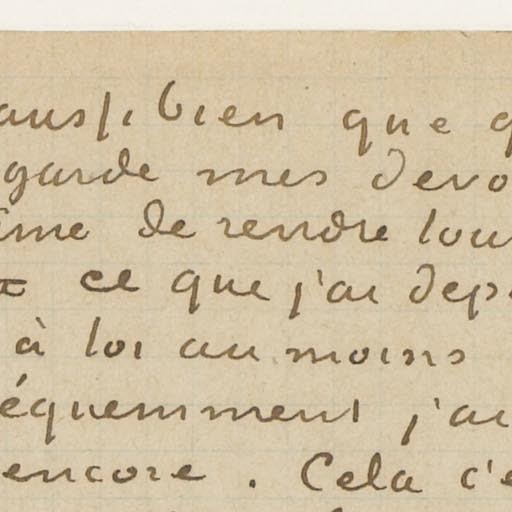 aussi bien que q
garde mes devo
ime de rendre tou
ce que j'ai dep
à toi au moins
équemment j'ai
encore. Cela c'e